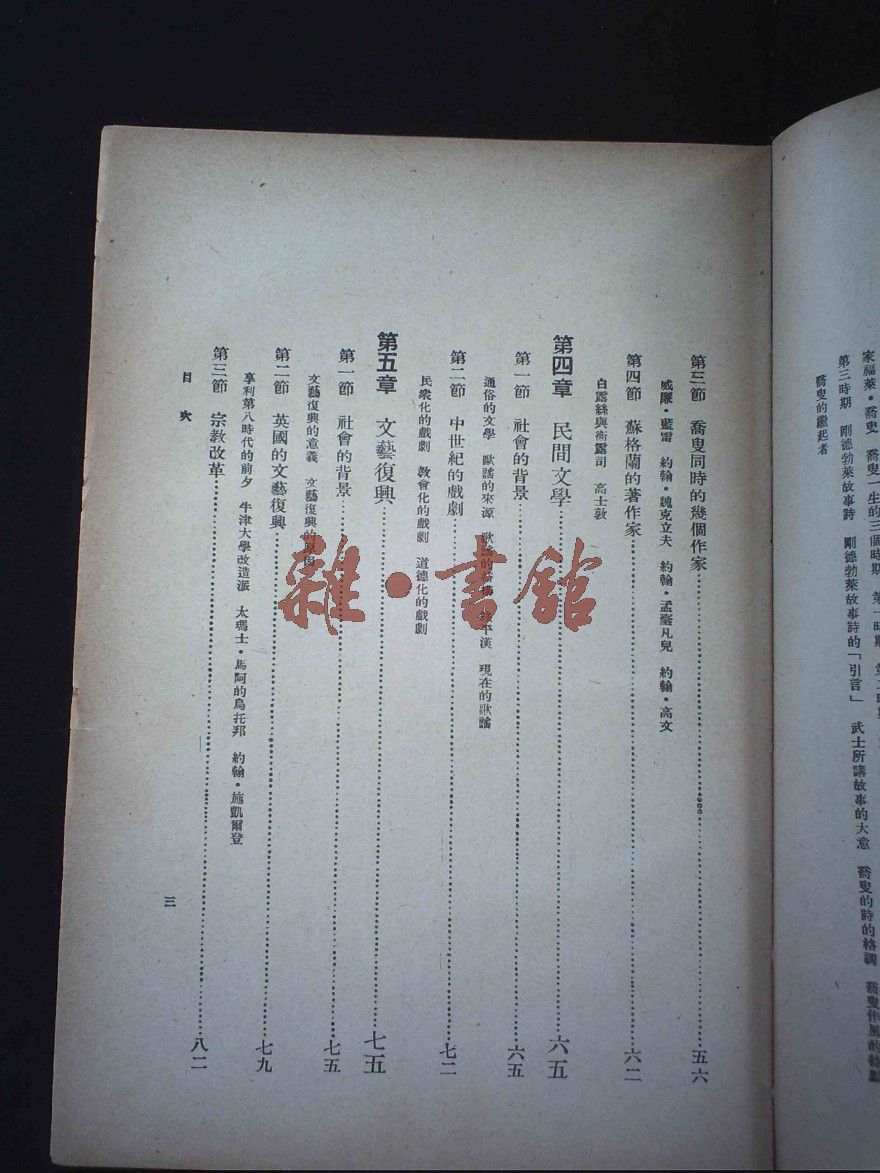 家福萊·喬叟 喬叟一生的三個時期 第一時期
第三時期 剛德勃萊故事詩 剛德勃萊故事詩的「引言」 武士所講故事的大意 喬叟的詩的格調 喬叟作風的特點
喬叟的繼起者
第三節 喬叟同時的幾個作家……五六
威廉·藍雷 約翰·魏克立夫 約翰·孟臺凡兒 約翰·高文
第四節 蘇格蘭的著作家……六二
白露絲與衛露司 高士敦
第四章 民間文學……六五
第一節 社會的背景……六五
通俗的文學 歌謠的來源 歌謠的 平漢 現在的歌謠
第二節 中世紀的戲劇……七二
民衆化的戲劇 教會化的戲劇 道德化的戲劇
第五章 文藝復興……七五
第一節 社會的背景……七五
文藝復興的意義 文藝復興的原因
第二節 英國的文藝復興……七九
亨利第八時代的前夕 牛津大學改造派 太瑪士·馬阿的烏托邦 約翰·施凱爾登
第三節 宗教改革……八二
目次
三
雜·書館